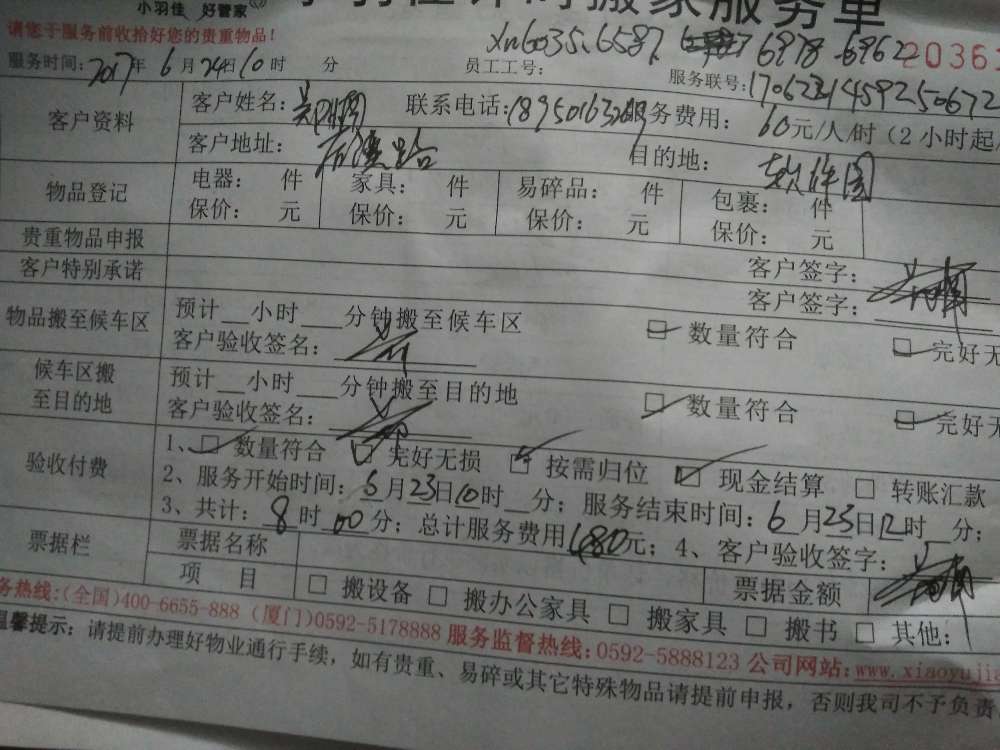 小羽佳 好管家
搬家服务单
请您于服务前收拾好您的贵重物品！
xn6035.6587 6978 6962 20363
服务时间：2017年6月24日10时 分 员工工号： 服务联号：
客户资料 客户姓名： 联系电话： 服务费用：60元/人/时（2小时起/
客户地址： 目的地：软件园
物品登记 电器： 件 家具： 件 易碎品： 件 包裹： 件
保价： 元 保价： 元 保价： 元 保价： 元
贵重物品申报 客户签字：
客户特别承诺 客户签字：
物品搬至候车区 预计__小时___分钟搬至候车区 数量符合 完好无
客户验收签名：
候车区搬至目的地 预计__小时___分钟搬至目的地 数量符合 完好无
客户验收签名：
验收付费 1、数量符合 完好无损 按需归位 现金结算 转账汇款
2、服务开始时间：6月23日10时__分；服务结束时间：6月23日12时__分；
3、共计：8时00分；总计服务费用480元；4、客户验收签字：
票据栏 票据名称 票据金额
项 目 搬设备 搬办公家具 搬家具 搬书 其他：
务热线：(全国)400-6655-888 (厦门)0592-5178888 服务监督热线：0592-5888123 公司网站：www.xiaoyujia
温馨提示：请提前办理好物业通行手续，如有贵重、易碎或其它特殊物品请提前申报，否则我司不予负责